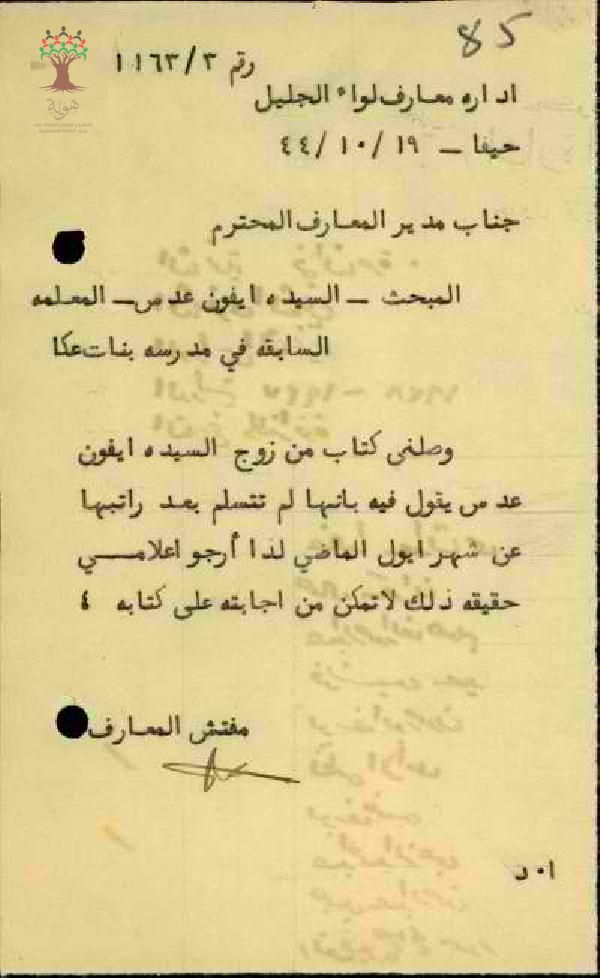 85
رقم ١١٦٣/٣
اداره معارف لواء الجليل
حيفا – ١٩/١٠/٤٤
جناب مدير المعارف المحترم
المبحث – السيده ايفون عدس – المعلمه
السابقه في مدرسه بنات عكا
وصلني كتاب من زوج السيده ايفون
عدس يقول فيه بانها لم تتسلم بعد راتبها
عن شهر ايول الماضي لذا أرجو اعلامي
حقيقه ذلك لاتمكن من اجابته على كتابه ؛
مفتش المعارف
ا٠د
هوية